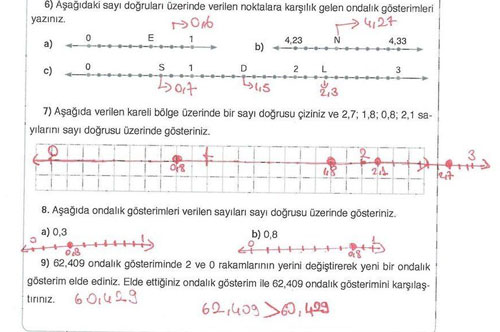 6) Aşağıdaki sayı doğruları üzerinde verilen noktalara karşılık gelen ondalık gösterimleri
yazınız.
0,6
4,27
a) 0 E 1 b) 4,23 N 4,33
c) 0 S 1 D 2 L 3
0,7 1,5 2,3
7) Aşağıda verilen kareli bölge üzerinde bir sayı doğrusu çiziniz ve 2,7; 1,8; 0,8; 2,1 sa-
yılarını sayı doğrusu üzerinde gösteriniz.
0 1 2 3
0,8 1,8 2,1 2,7
8. Aşağıda ondalık gösterimleri verilen sayıları sayı doğrusu üzerinde gösteriniz.
a) 0,3 b) 0,8
0 1 0 1
0,3 0,8
9) 62,409 ondalık gösteriminde 2 ve 0 rakamlarının yerini değiştirerek yeni bir ondalık
gösterim elde ediniz. Elde ettiğiniz ondalık gösterim ile 62,409 ondalık gösterimini karşılaş-
tırınız.
60,429
62,409 > 60,429